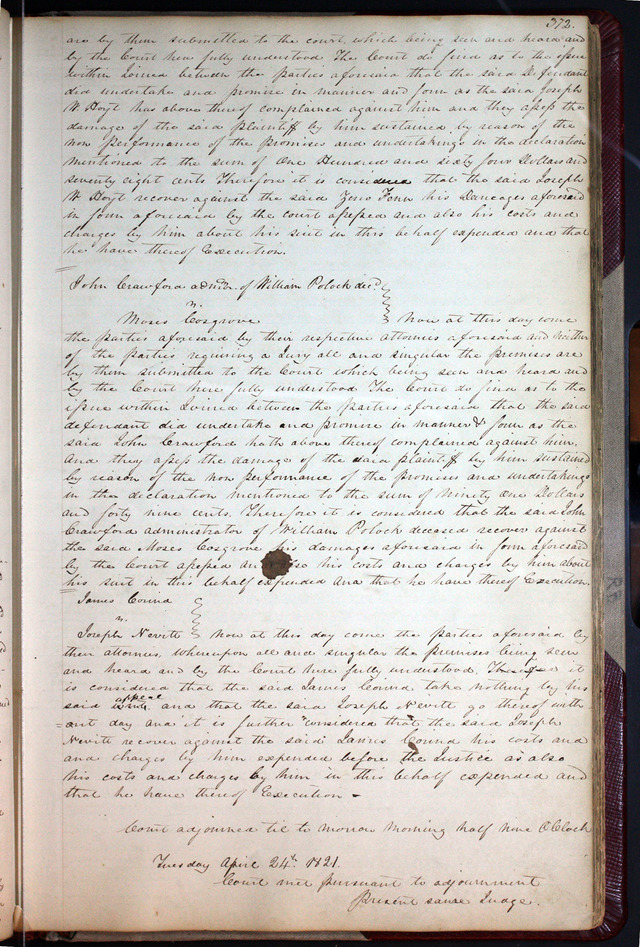 372.
are by them submitted to the court which being seen and heard and
by the Court here fully understood The Court do find as to the issue
within Joined between the parties aforesaid that the said Defendant
did undertake and promise in manner and form as the said Joseph
W Hoyt has above thereof complained against him and they assess the
damage of the said plaintiff by him sustained by reason of the
non performance of the promises and undertakings in the declaration
mentioned to the sum of One Hundred and sixty four Dollars and
seventy eight cents Therefore it is considered that the said Joseph
W Hoyt recover against the said Zeno Fenn his Damages aforesaid
in form aforesaid by the court assessed and also his costs and
charges by him about his suit in this behalf expended and that
he have thereof Execution.
John Crawford admr. of William Polock decd.
v.
Moses Cosgrove Now at this day come
the parties aforesaid by their respective attornies aforesaid and neither
of the parties requiring a Jury all and singular the premises are
by them submitted to the Court which being seen and heard and
by the Court here fully understood The Court do find as to the
issue within Joined between the parties aforesaid that the said
defendant did undertake and promise in manner & form as the
said John Crawford hath above thereof complained against him.
And they assess the damage of the said plaintiff by him sustained
by reason of the non performance of the promises and undertakings
in the declaration mentioned to the sum of Ninety One Dollars
and forty nine cents. Therefore it is considered that the said John
Crawford administrator of William Polock deceased recover against
the said Moses Cosgrove his damages aforesaid in form aforesaid
by the Court assessed and also his costs and charges by him about
his suit in this behalf expended and that he have thereof Execution.
James Cound
v.
Joseph Nevitt Now at this day come the parties aforesaid by
their attornies, whereupon all and singular the premises being seen
and heard and by the Court here fully understood, it
is considered that the said James Cound take nothing by his
appeal
said and that the said Joseph Nevitt go thereof with
=out day and it is further considered that the said Joseph
Nevitt recover against the said James Cound his costs and
and charges by him expended before the Justice as also
his costs and charges by him in this behalf expended and
that he have thereof Execution -
Court adjourned til to morrow morning half nine O Clock
Tuesday April 24th. 1821.
Court met pursuant to adjournment
Present same Judge.